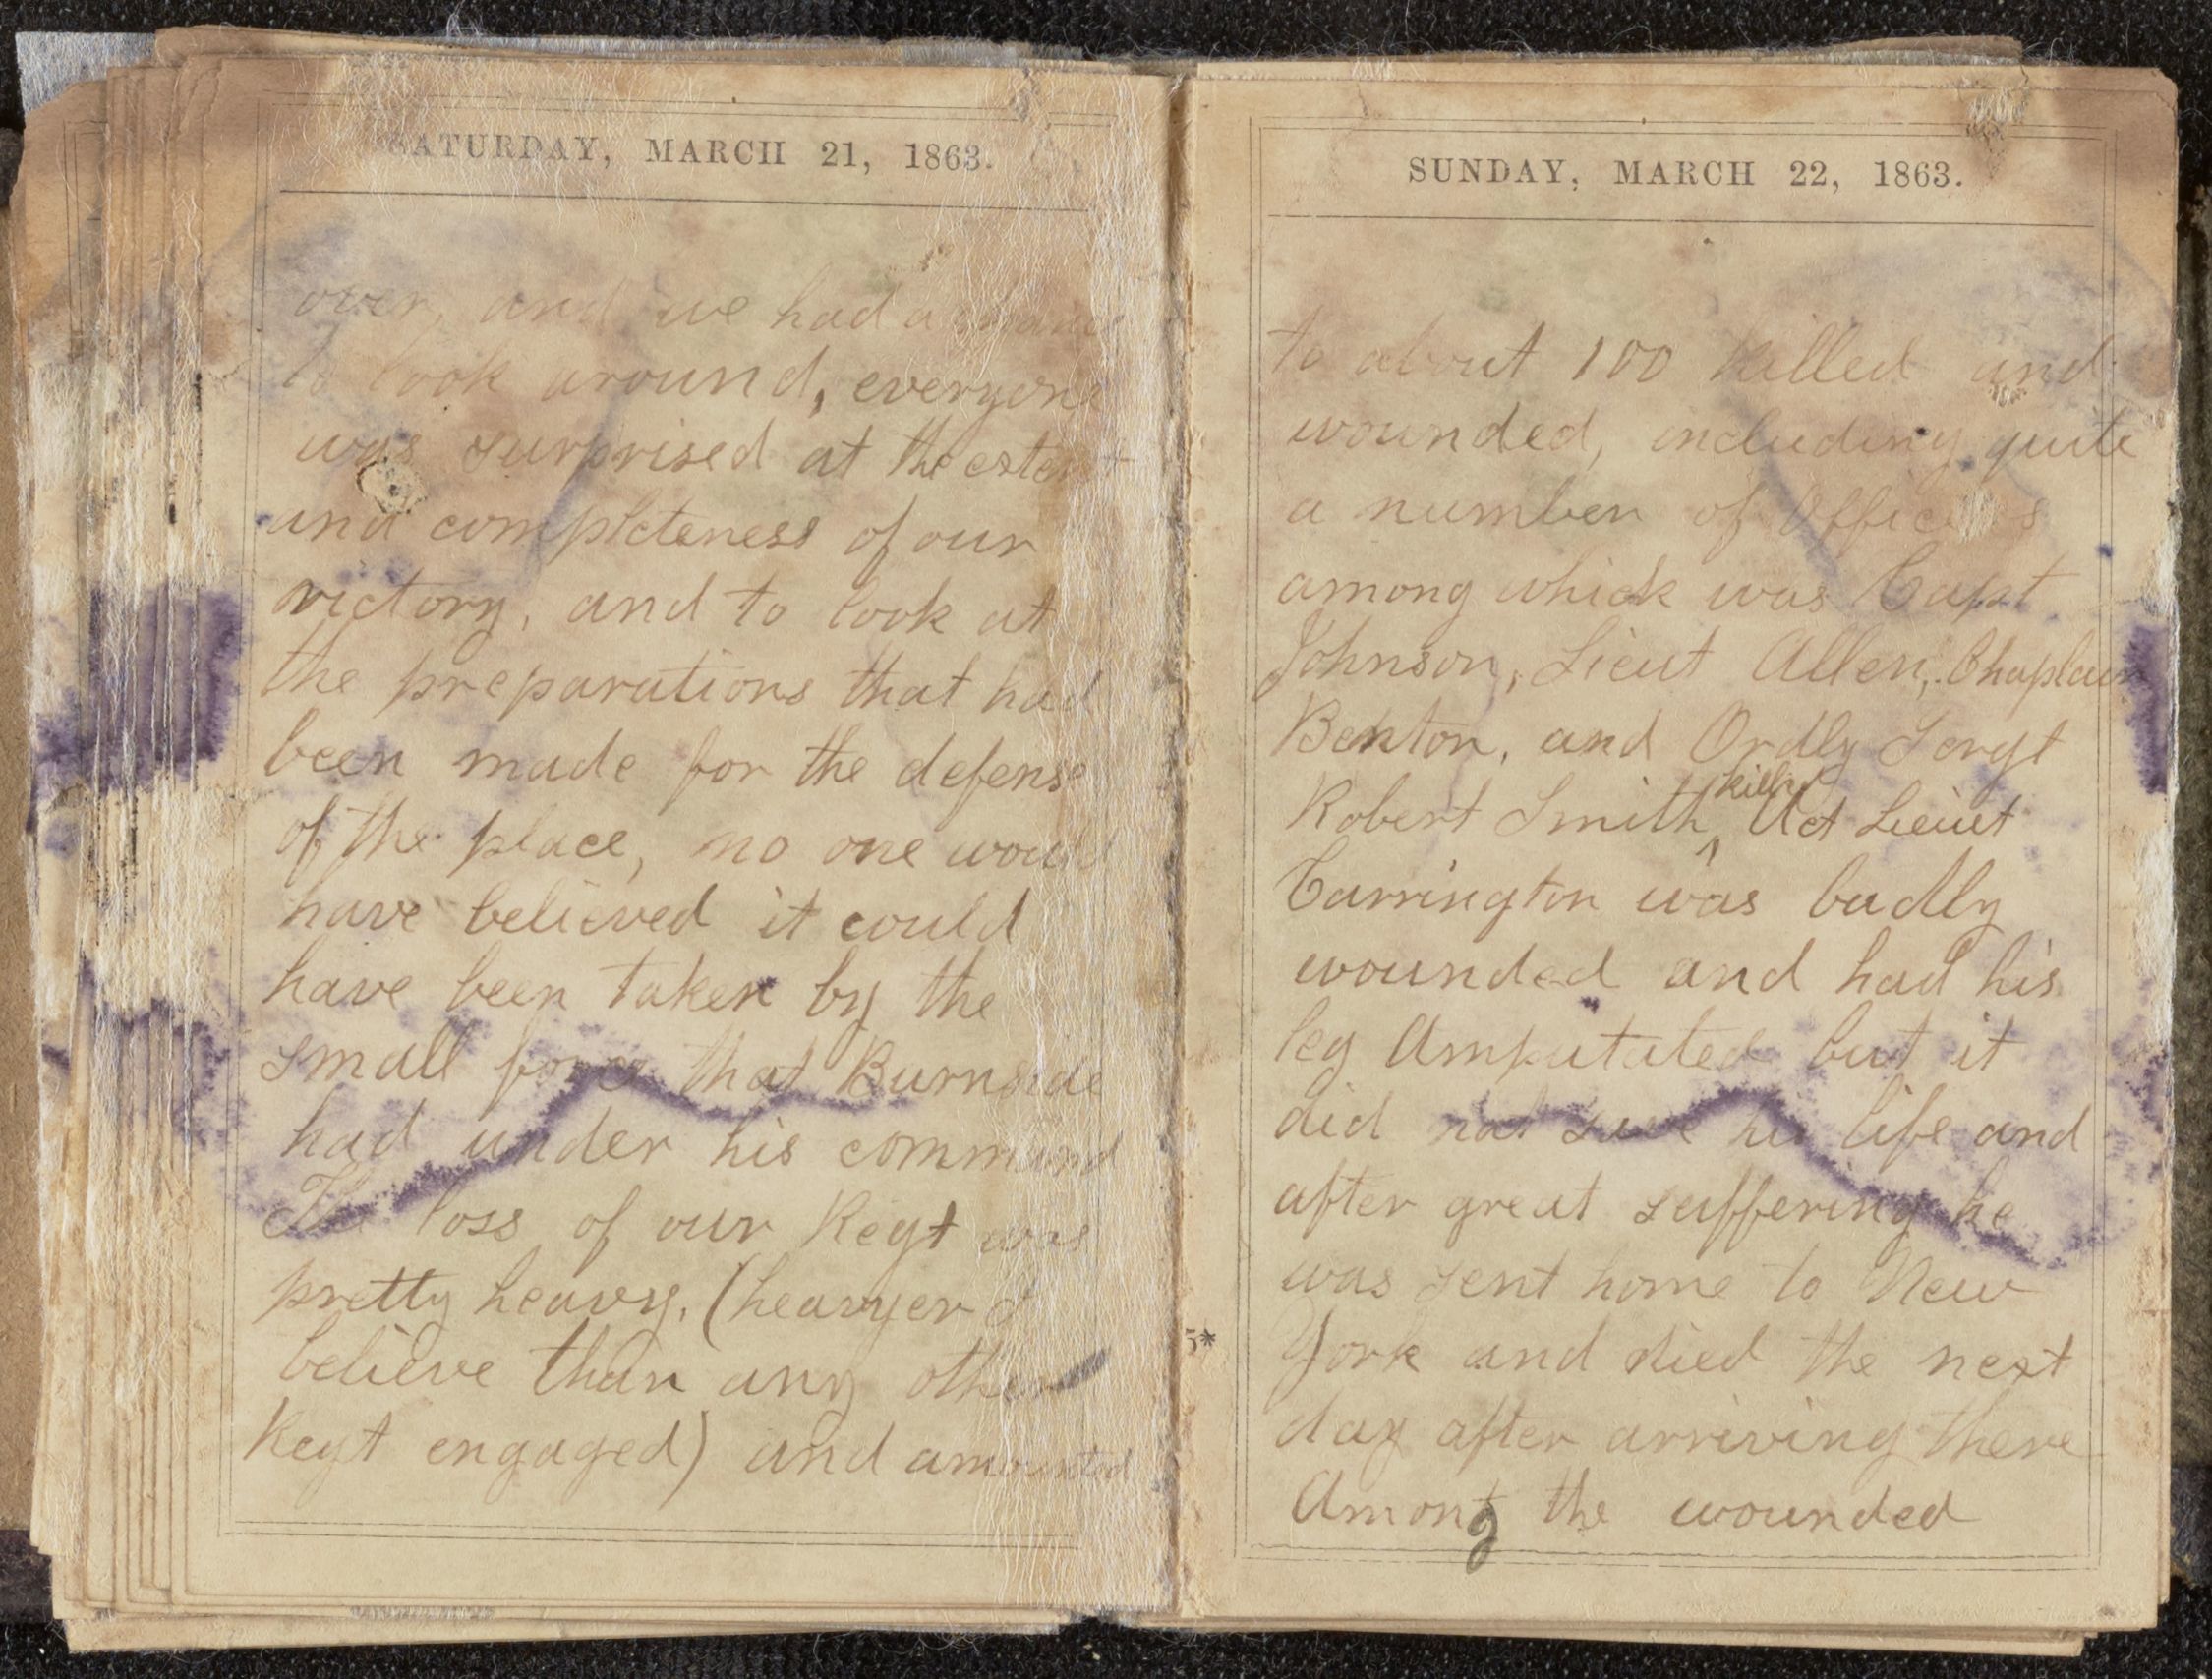 SATURDAY, MARCH 21, 1863.
over, and we had a chance
to look around, everyone
was surprised at the extent
and completeness of our
victory, and to look at
the preparations that had
been made for the defense
of the place, no one would
have believed it could
have been taken by the
small force that Burnside
had under his command
The loss of our Regt was
pretty heavy, (heavyer I
believe than any other
Regt engaged) and amounted
SUNDAY, MARCH 22, 1863.
to about 100 killed and
wounded, including quite
a number of Officers
among which was Capt
Johnson, Lieut Allen, Chaplain
Benton, and Ordly Sergt
killed
Robert Smith ^ Act Lieut
Carrington was badly
wounded and had his
leg Amputated but it
did not save his life and
after great suffering he
was sent home to New
York and died the next
day after arriving there
Among the wounded
5*